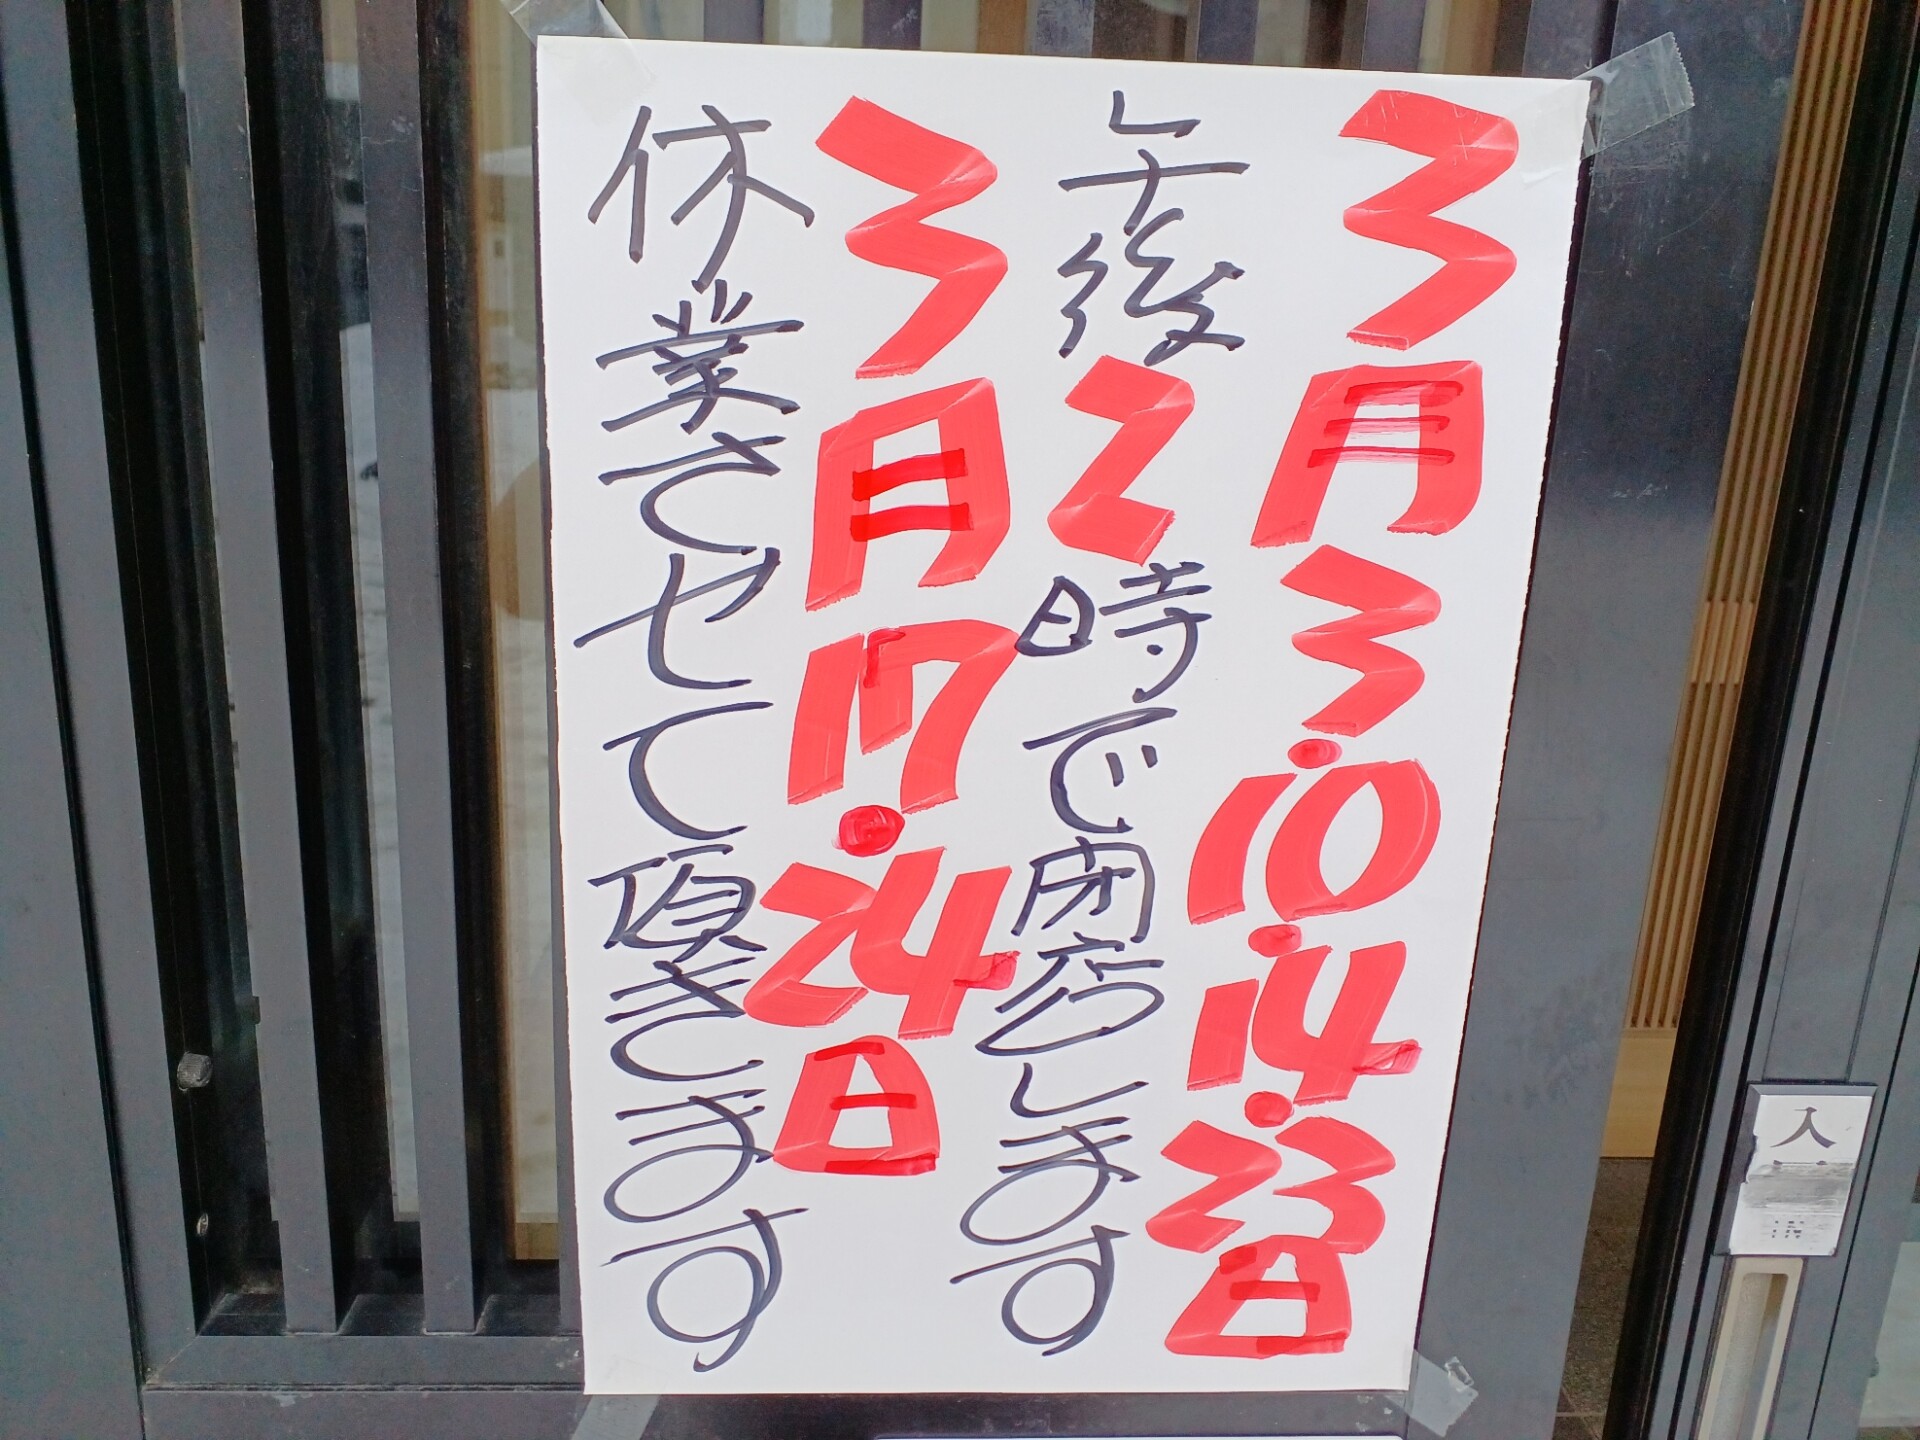 3月3・10・14・23日
午後2時で閉店します
3月17・24日
休業させて頂きます
入